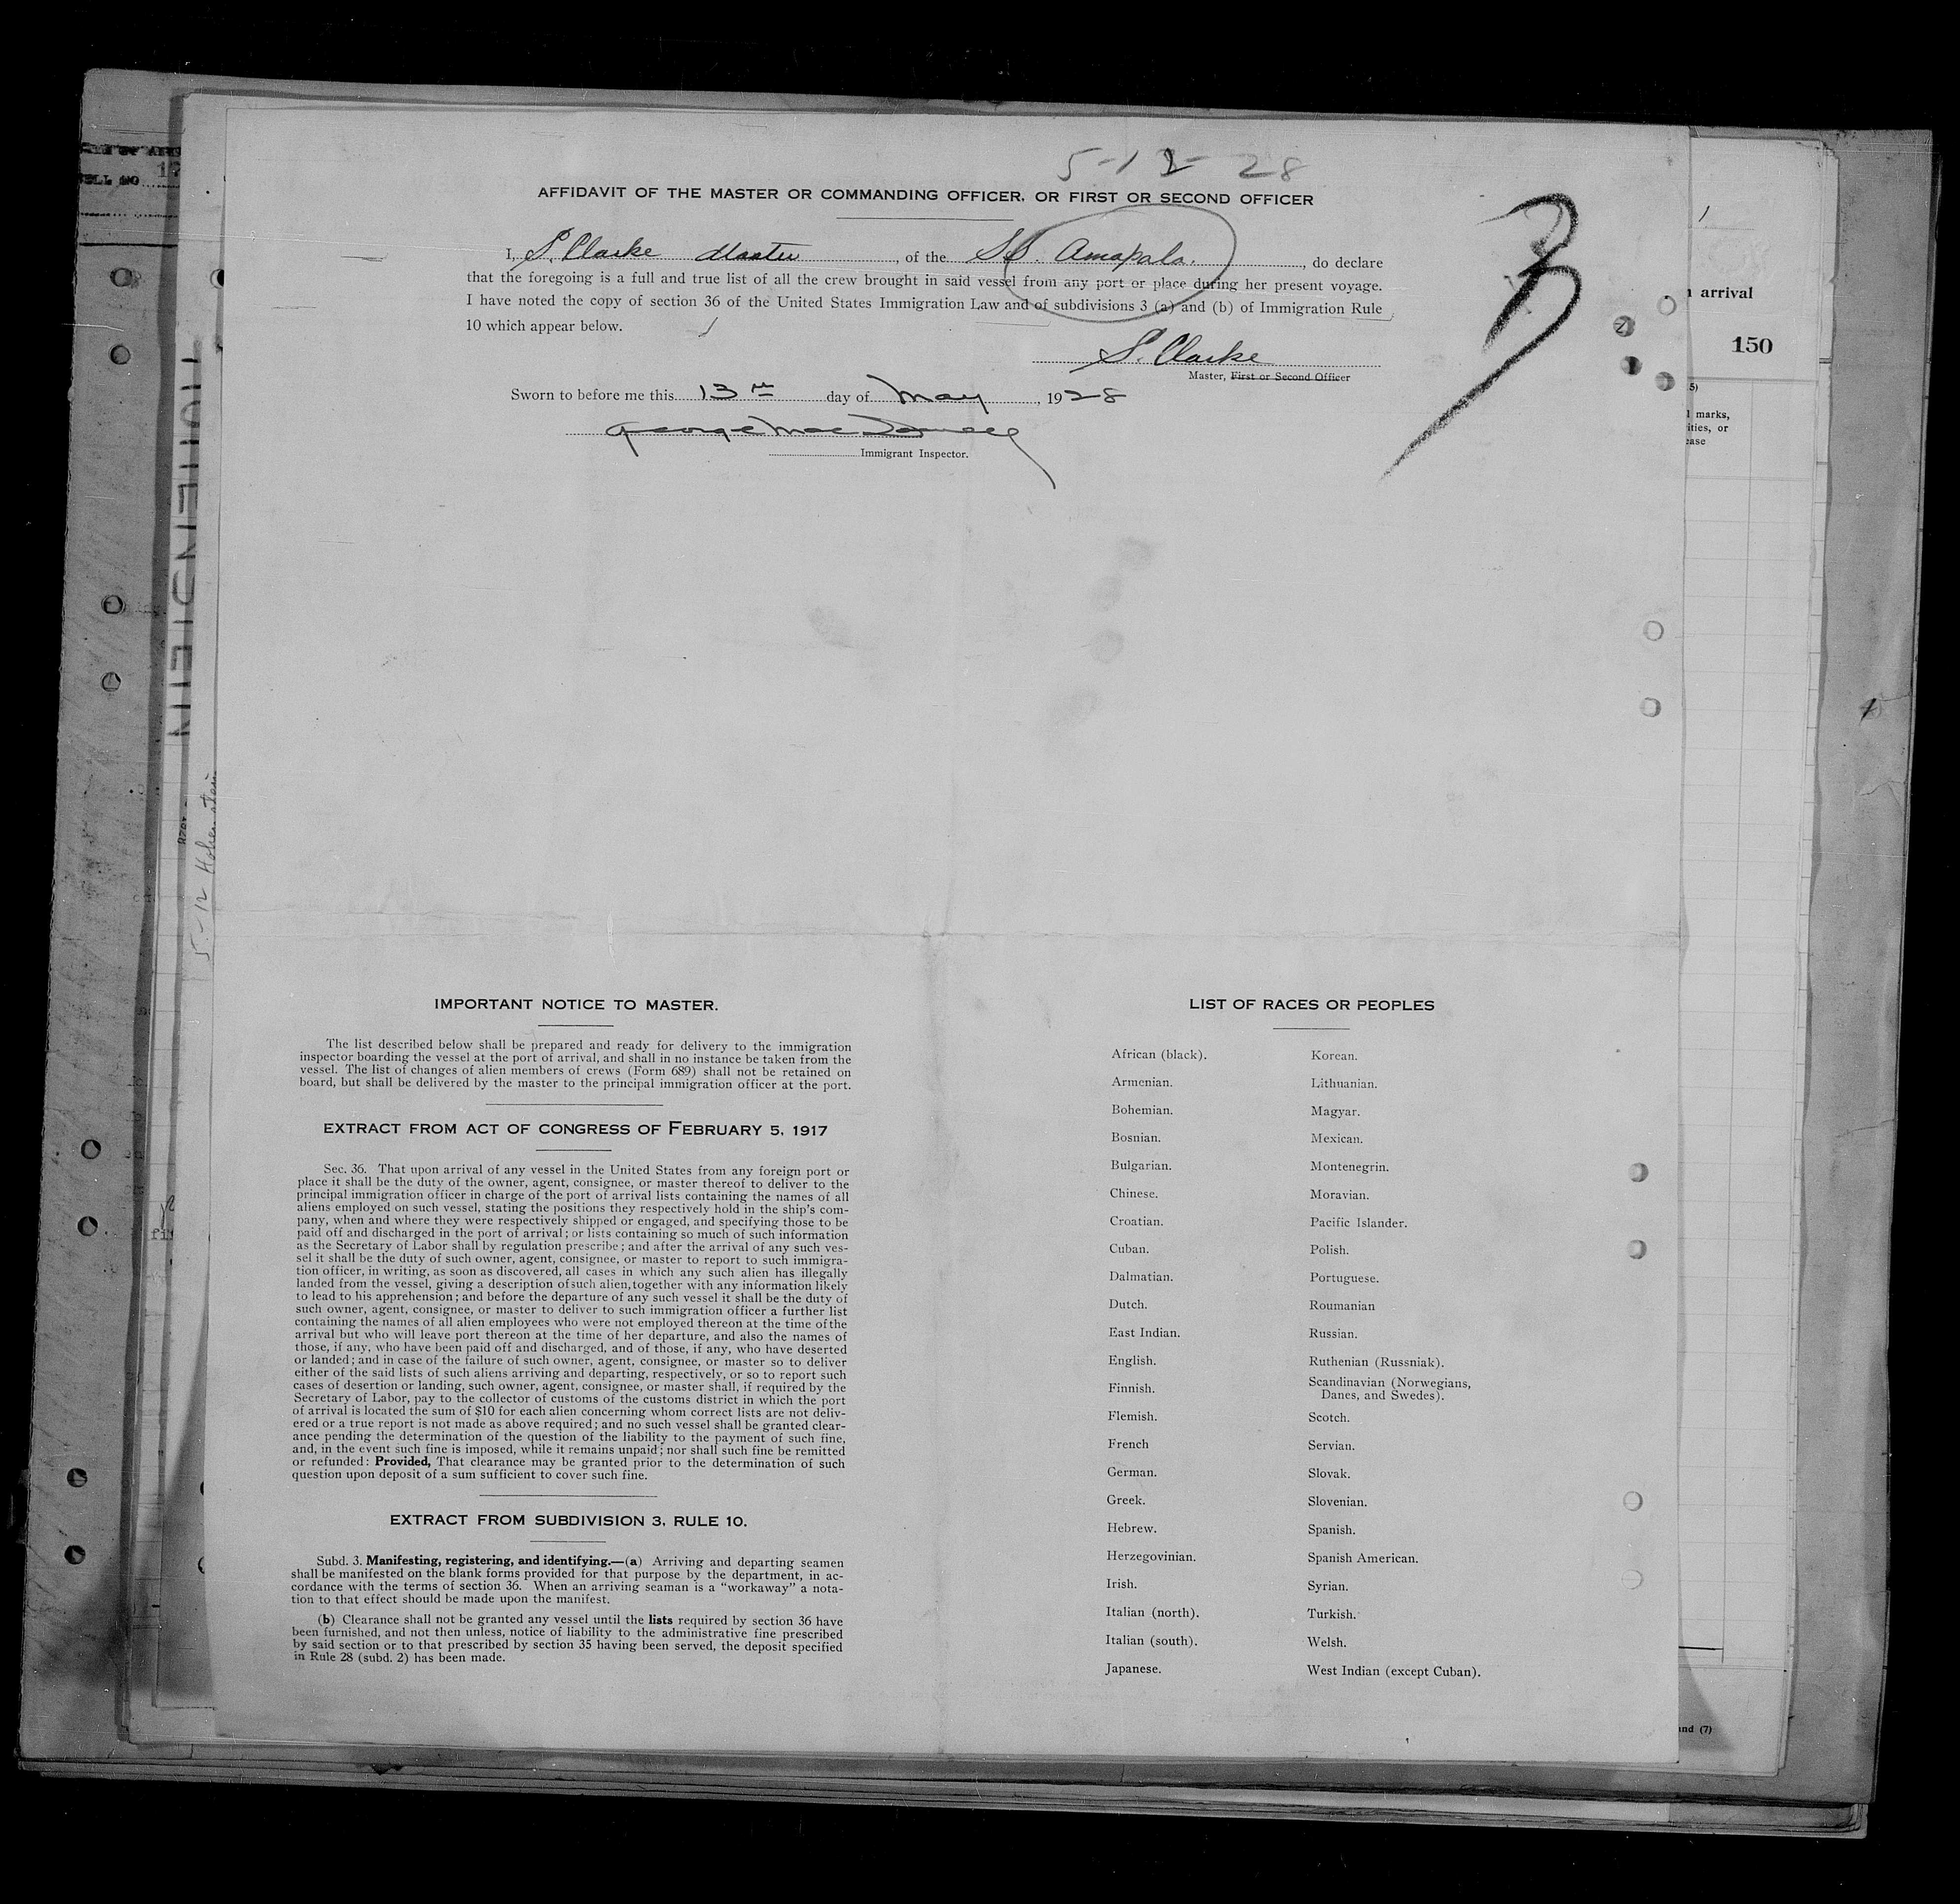 5-12-28
AFFIDAVIT OF THE MASTER OR COMMANDING OFFICER, OR FIRST OR SECOND OFFICER
I, S. Clarke Master, of the SS. Amapala., do declare
that the foregoing is a full and true list of all the crew brought in said vessel from any port or place during her present voyage.
I have noted the copy of section 36 of the United States Immigration Law and of subdivisions 3 (a) and (b) of Immigration Rule
10 which appear below.
S. Clarke
Master, First or Second Officer
Sworn to before me this 13th day of May, 1928
Immigrant Inspector.
3
arrival
150
5)
marks,
ities, or
ease
HOHENSTEIN
5-12 Hohenstein
IMPORTANT NOTICE TO MASTER.
The list described below shall be prepared and ready for delivery to the immigration
inspector boarding the vessel at the port of arrival, and shall in no instance be taken from the
vessel. The list of changes of alien members of crews (Form 689) shall not be retained on
board, but shall be delivered by the master to the principal immigration officer at the port.
EXTRACT FROM ACT OF CONGRESS OF FEBRUARY 5, 1917
Sec. 36. That upon arrival of any vessel in the United States from any foreign port or
place it shall be the duty of the owner, agent, consignee, or master thereof to deliver to the
principal immigration officer in charge of the port of arrival lists containing the names of all
aliens employed on such vessel, stating the positions they respectively hold in the ship's com-
pany, when and where they were respectively shipped or engaged, and specifying those to be
paid off and discharged in the port of arrival; or lists containing so much of such information
as the Secretary of Labor shall by regulation prescribe; and after the arrival of any such ves-
sel it shall be the duty of such owner, agent, consignee, or master to report to such immigra-
tion officer, in writing, as soon as discovered, all cases in which any such alien has illegally
landed from the vessel, giving a description of such alien, together with any information likely
to lead to his apprehension; and before the departure of any such vessel it shall be the duty of
such owner, agent, consignee, or master to deliver to such immigration officer a further list
containing the names of all alien employees who were not employed thereon at the time of the
arrival but who will leave port thereon at the time of her departure, and also the names of
those, if any, who have been paid off and discharged, and of those, if any, who have deserted
or landed; and in case of the failure of such owner, agent, consignee, or master so to deliver
either of the said lists of such aliens arriving and departing, respectively, or so to report such
cases of desertion or landing, such owner, agent, consignee, or master shall, if required by the
Secretary of Labor, pay to the collector of customs of the customs district in which the port
of arrival is located the sum of $10 for each alien concerning whom correct lists are not deliv-
ered or a true report is not made as above required; and no such vessel shall be granted clear-
ance pending the determination of the question of the liability to the payment of such fine,
and, in the event such fine is imposed, while it remains unpaid; nor shall such fine be remitted
or refunded: Provided, That clearance may be granted prior to the determination of such
question upon deposit of a sum sufficient to cover such fine.
EXTRACT FROM SUBDIVISION 3, RULE 10.
Subd. 3. Manifesting, registering, and identifying.—(a) Arriving and departing seamen
shall be manifested on the blank forms provided for that purpose by the department, in ac-
cordance with the terms of section 36. When an arriving seaman is a "workaway" a nota-
tion to that effect should be made upon the manifest.
(b) Clearance shall not be granted any vessel until the lists required by section 36 have
been furnished, and not then unless, notice of liability to the administrative fine prescribed
by said section or to that prescribed by section 35 having been served, the deposit specified
in Rule 28 (subd. 2) has been made.
LIST OF RACES OR PEOPLES
African (black). Korean.
Armenian. Lithuanian.
Bohemian. Magyar.
Bosnian. Mexican.
Bulgarian. Montenegrin.
Chinese. Moravian.
Croatian. Pacific Islander.
Cuban. Polish.
Dalmatian. Portuguese.
Dutch. Roumanian
East Indian. Russian.
English. Ruthenian (Russniak).
Finnish. Scandinavian (Norwegians,
Danes, and Swedes).
Flemish. Scotch.
French Servian.
German. Slovak.
Greek. Slovenian.
Hebrew. Spanish.
Herzegovinian. Spanish American.
Irish. Syrian.
Italian (north). Turkish.
Italian (south). Welsh.
Japanese. West Indian (except Cuban).
and (7)